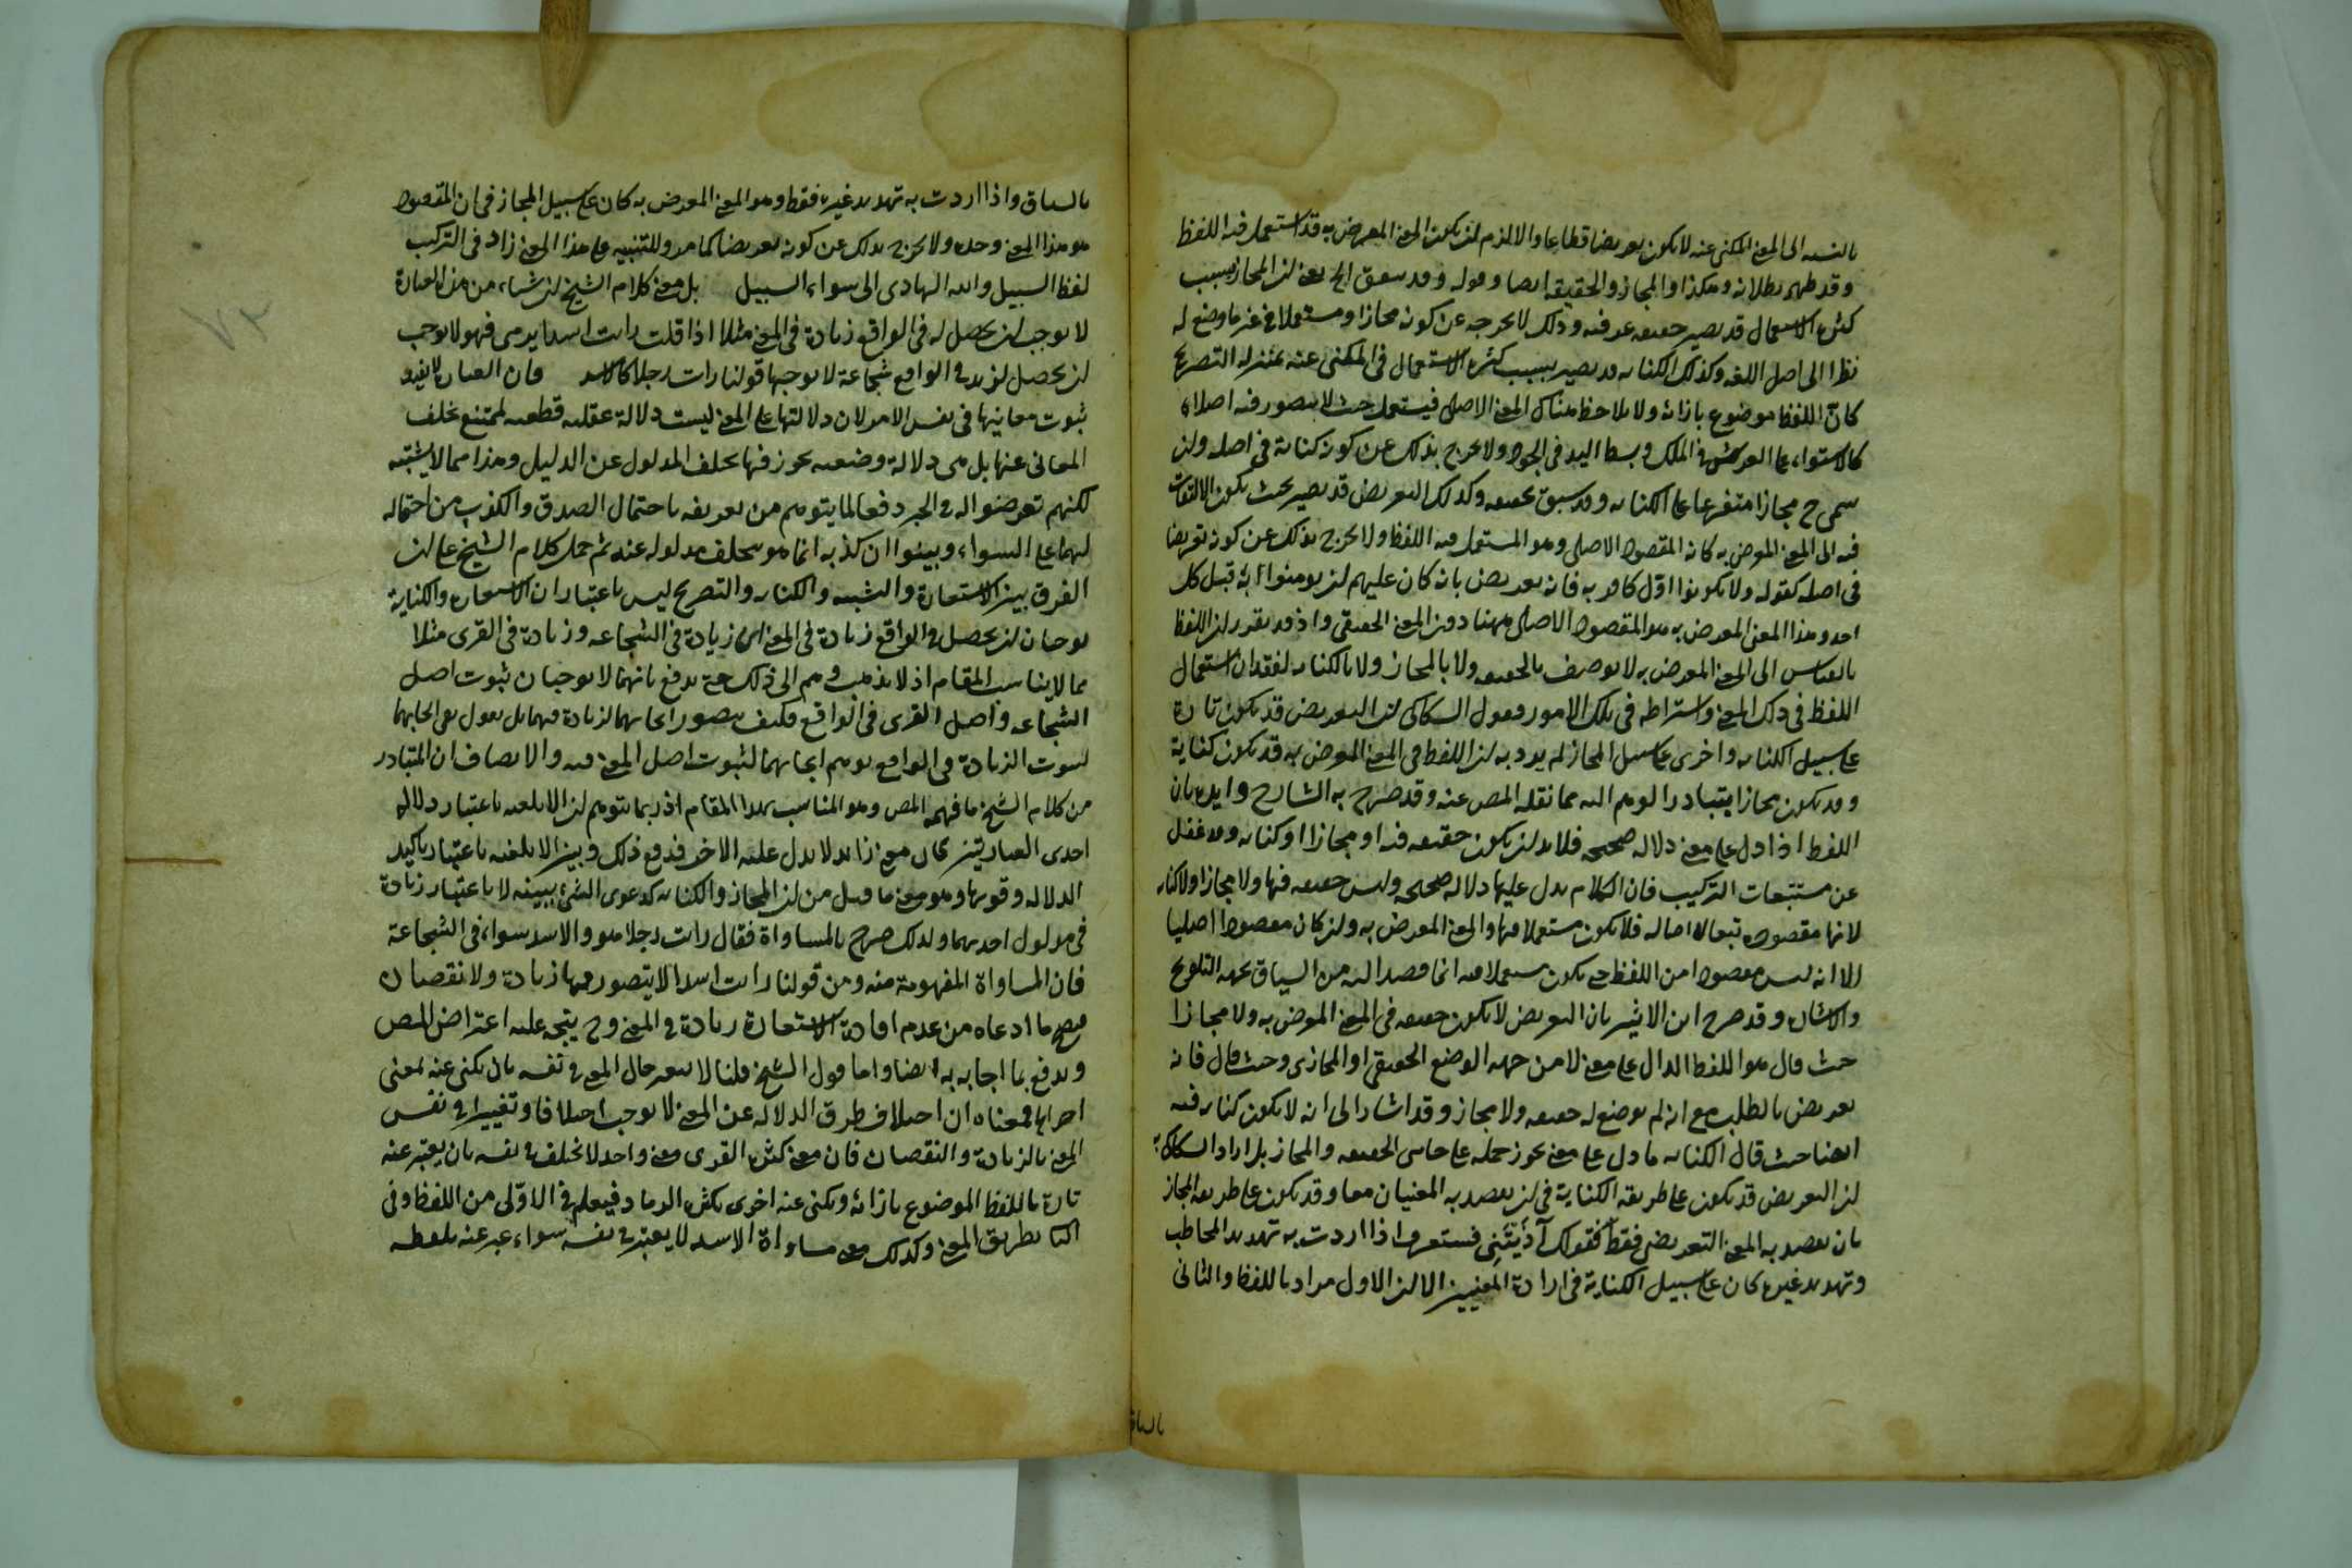 بالنسبة الى المعنى المكنى عنه لا يكون تعريضا قطعا والا لزم ان يكون المعنى المعرض به قد استعمل فيه اللفظ
وقد ظهر بطلانه وهكذا والمجاز والحقيقة ايضا وقوله وقد سبق الخ يعنى ان المجاز بسبب
كثرة الاستعمال قد يصير حقيقة عرفية وذلك لا يخرجه عن كونه مجازا ومستعملا في غير ما وضع له
نظرا الى اصل اللغة وكذلك الكناية قد يصير بسبب كثرة الاستعمال في المكنى عنه بمنزلة التصريح
كان اللفظ موضوع بازائه ولا يلاحظ هناك المعنى الاصلى فيستعمل حيث لا يتصور فيه اصلا
كالاستواء على العرش في الملك وبسط اليد في الجود ولا يخرج بذلك عن كونه كناية في اصله وان
سمى ح مجازا متفرعا على الكناية وقد سبق تحقيقه وكذلك التعريض قد يصير بحيث يكون الالتفات
فيه الى المعنى المعرض به كانه المقصود الاصلى وهو المستعمل فيه اللفظ ولا يخرج بذلك عن كونه تعريضا
في اصله كقوله ولا تكونوا اول كافر به فانه تعريض بانه كان عليهم ان يومنوا به قبل كل
احد وهذا المعنى المعرض به هو المقصود الاصلى ههنا دون المعنى الحقيقى واذ قد تقرر ان اللفظ
بالقياس الى المعنى المعرض به لا يوصف بالحقيقة ولا بالمجاز ولا بالكناية لفقدان استعمال
اللفظ في ذلك المعنى واشتراطه في تلك الامور فقول السكاكى ان التعريض قد يكون تارة
على سبيل الكناية واخرى على سبيل المجاز لم يرد به ان اللفظ في المعنى المعرض به قد يكون كناية
وقد يكون مجازا يتبادر الوهم اليه مما نقله المص عنه وقد صرح به الشارح وايده بان
اللفظ اذا دل على معنى دلالة صحيحة فلا بد ان يكون حقيقة فيه او مجازا او كناية وقد غفل
عن مستتبعات التركيب فان الكلام يدل عليها دلالة صحيحة وليس حقيقة فيها ولا مجازا ولا كناية
لانها مقصودة تبعا لا اصالة فلا يكون مستعملا فيها والمعنى المعرض به وان كان مقصودا اصليا
الا انه ليس مقصودا من اللفظ حتى يكون مستعملا فيه انما قصد اليه من السياق بجهة التلويح
والاشارة وقد صرح ابن الاثير بان التعريض لا يكون حقيقة في المعنى المعرض به ولا مجازا
حيث قال هو اللفظ الدال على معنى لا من جهة الوضع الحقيقى او المجازى وحيث قال فانه
تعريض بالطلب مع انه لم يوضع له حقيقة ولا مجاز وقد اشار الى انه لا يكون كناية فيه
ايضا حيث قال الكناية ما دل على معنى يجوز حمله على جانبى الحقيقة والمجاز بل اراد السكاكى به
ان التعريض قد يكون على طريقة الكناية في ان يقصد به المعنيان معا وقد يكون على طريقة المجاز
بان يقصد به المعنى التعريضى فقط كقولك آذيتنى فستعرف اذا اردت به تهديد المخاطب
وتهديد غيره كان على سبيل الكناية في ارادة المعنيين الا ان الاول مراد باللفظ والثانى
بالسياق
بالسياق واذا اردت به تهديد غيره فقط وهو المعنى المعرض به كان على سبيل المجاز في ان المقصود
هو هذا المعنى وحده ولا يخرج بذلك عن كونه تعريضا كما مر وللتنبيه على هذا المعنى زاد في التركيب
لفظ السبيل والله الهادى الى سواء السبيل بل معنى كلام الشيخ ان شيئا من هذه العبارة
لا يوجب ان يحصل له في الواقع زيادة في المعنى مثلا اذا قلت رايت اسدا يرمى فهو لا يوجب
ان يحصل لزيد في الواقع شجاعة لا يوجبها قولنا رايت رجلا كالاسد فان العبارة لا تفيد
ثبوت معانيها في نفس الامر لان دلالتها على المعنى ليست دلالة عقلية قطعية لتمتنع تخلف
المعانى عنها بل هى دلالة وضعية يجوز فيها تخلف المدلول عن الدليل وهذا مما لا يشتبه
لكنهم تعرضوا له في الخبر دفعا لما يتوهم من تعريفه باحتمال الصدق والكذب من احتماله
لهما على السواء وبينوا ان كذبه انما هو بتخلف مدلوله عنه ثم حمل كلام الشيخ على ان
الفرق بين الاستعارة والتشبيه والكناية والتصريح ليس باعتبار ان الاستعارة والكناية
يوجبان ان يحصل في الواقع زيادة في المعنى اى زيادة في الشجاعة وزيادة في القرى مثلا
مما لا يناسب المقام اذ لا يذهب وهم الى ذلك حتى يدفع بانهما لا يوجبان ثبوت اصل
الشجاعة واصل القرى في الواقع فكيف يتصور ايجابهما لزيادة فيهما بل نقول نفى ايجابهما
لثبوت الزيادة في الواقع يوهم ايجابهما لثبوت اصل المعنى فيه والانصاف ان المتبادر
من كلام الشيخ ما فهمه المص وهو المناسب بهذا المقام اذ ربما يتوهم ان الابلغية باعتبار دلالة
احدى العبارتين على معنى زائد لا يدل عليه الاخر فدفع ذلك وبين الابلغية باعتبار تاكيد
الدلالة وقوتها وهو معنى ما قيل من ان المجاز والكناية كدعوى الشئ ببينة لا باعتبار زيادة
في مدلول احديهما ولذلك صرح بالمساواة فقال رايت رجلا هو والاسد سواء في الشجاعة
فان المساواة المفهومة منه ومن قولنا رايت اسدا لا يتصور فيها زيادة ولا نقصان
فصح ما ادعاه من عدم افادة الاستعارة زيادة في المعنى وح يتجه عليه اعتراض المص
ويدفع بما اجاب به ايضا واما قول الشيخ قلنا لا يتغير حال المعنى في نفسه بان يكنى عنه بمعنى
اخر فمعناه ان اختلاف طرق الدلالة عن المعنى لا يوجب اختلافا وتغييرا في نفس
المعنى بالزيادة والنقصان فان معنى كثرة القرى معنى واحد لا يختلف في نفسه بان يعبر عنه
تارة باللفظ الموضوع بازائه ويكنى عنه اخرى بكثرة الرماد فيعلم في الاولى من اللفظ وفى
الثانى بطريق المعنى وكذلك معنى مساواة الاسد لا يتغير في نفسه سواء عبر عنه بلفظه